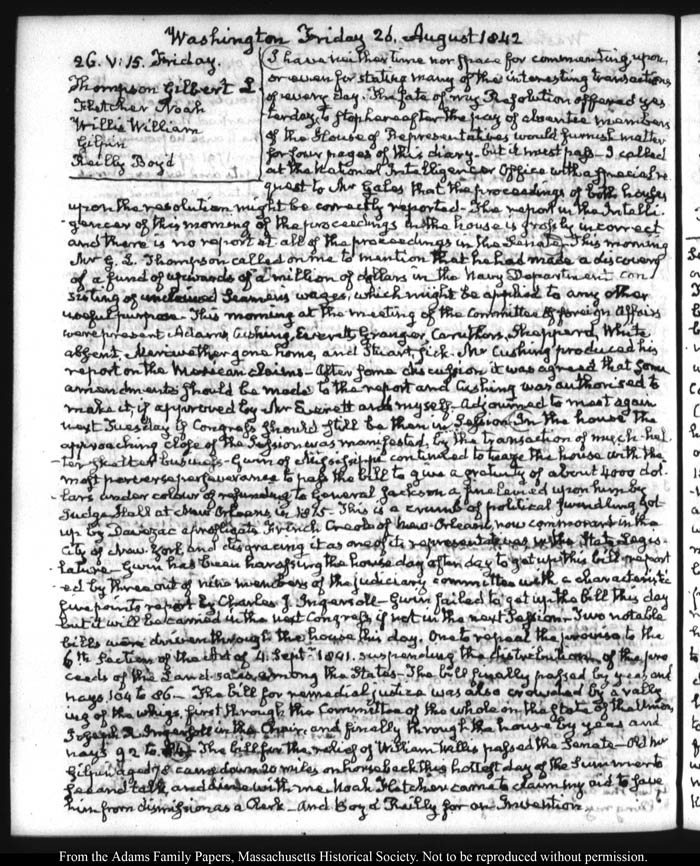 Washington Friday 26. August 1842
26. V:15. Friday.
Thompson Gilbert L.
Fletcher Noah
Willis William
Gilpin
Reilly Boyd
I have neither time nor space for commenting upon
or even for stating many of the interesting transactions
of every day. The fate of my Resolution offered yes
terday, to stop hereafter the pay of absentee members
of the House of Representatives would furnish matter
for four pages of this diary. but it must pass_ I called
at the National Intelligencer Office with a special re
quest to Mr Gales that the proceedings of both houses
upon the resolution might be correctly reported_ The report in the Intelli
gencer of this morning of the proceedings in the house is grossly incorrect
and there is no report at all of the proceedings in the Senate_ This morning
Mr G. L. Thompson called on me to mention that he had made a discovery
of a fund of upwards of a million of dollars in the Navy Department con
sisting of unclaimed Seamen's wages, which might be applied to any other
useful purpose. This morning at the meeting of the Committee of foreign Affairs
were present Adams, Cushing, Everett, Granger, Caruthers, Shepperd, White
absent, Meriwether gone home, and Stuart, sick_ Mr Cushing produced his
report on the Mexican claims_ After some discussion it was agreed that some
amendments should be made to the report and Cushing was authorised to
make it, if approved by Mr Everett and myself_ Adjourned to meet again
next Tuesday if Congress should still be then in Session. In the house the
approaching close of the Session was manifested, by the transaction of much hel
ter skelter business_ Gwin of Mississippi continued to teaze the house with the
most perverse perseverance to pass the bill to give a gratuity of about 4000 dol
lars under colour of refunding to General Jackson a fine levied upon him by
Judge Hall at New Orleans in 1815_ This is a crumb of political swindling got
up by Davezac a profligate French Creole of New-Orleans, now commorant in the
City of New York and disgracing it as one of its representatives in the State Legis
lature_ Gwin has been harassing the house day after day to get up this bill, report
ed by three out of nine members of the judiciary committee with a characteristic
five points report by Charles J. Ingersoll_ Gwin failed to get up the bill this day
but it will be carried in the next Congress if not in the next Session_ Two notable
bills were driven through the house this day. One to repeal the proviso to the
6th Section of the Act of 4. Septr 1841. suspending the distribution of the pro
ceeds of the Land-sales, among the States_ The bill finally passed by yeas and
nays 104 to 86_ The bill for remedial justice was also crowded by a rally
ing of the whigs, first through the Committee of the whole on the State of the Union,
Joseph R. Ingersoll in the Chair, and finally through the house by yeas and
nays 92 to The bill for the relief of William Willis passed the Senate_ Old Mr
Gilpin aged 78 came down 20 miles on horseback this hottest day of the Summer to
see and talk, and dine with me_ Noah Fletcher came to claim my aid to save
him from dismission as a Clerk_ And Boyd Reilly for an Invention.
From the Adams Family Papers, Massachusetts Historical Society. Not to be reproduced without permission.